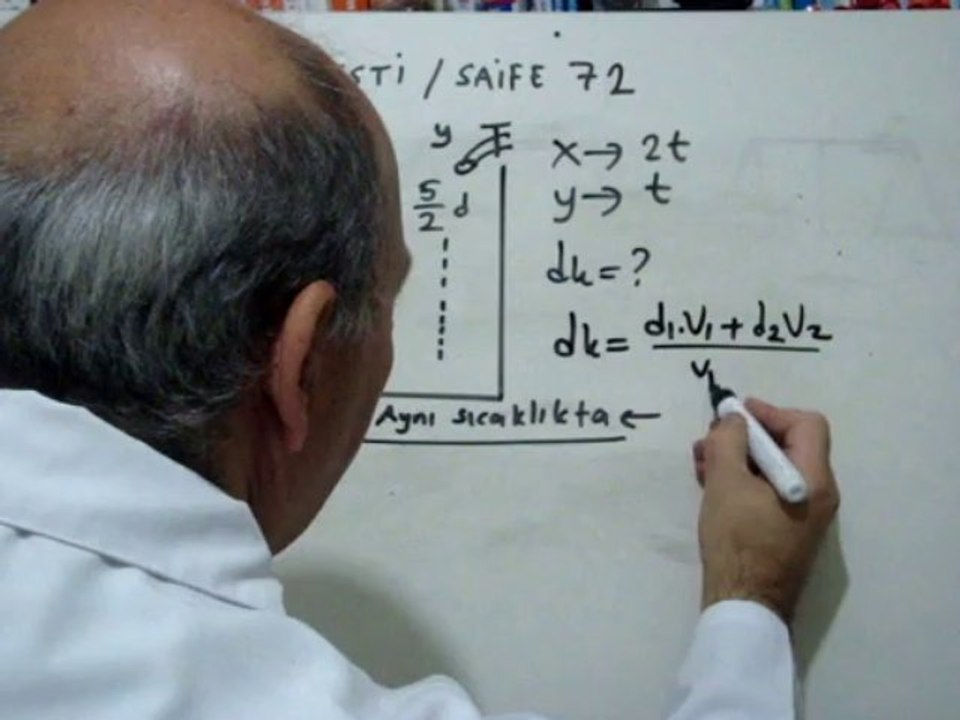 STİ / SAİFE 72
y
5/2 d
x → 2t
y → t
dk = ?
dk = d₁.V₁ + d₂V₂
V₁
Aynı sıcaklıkta ←